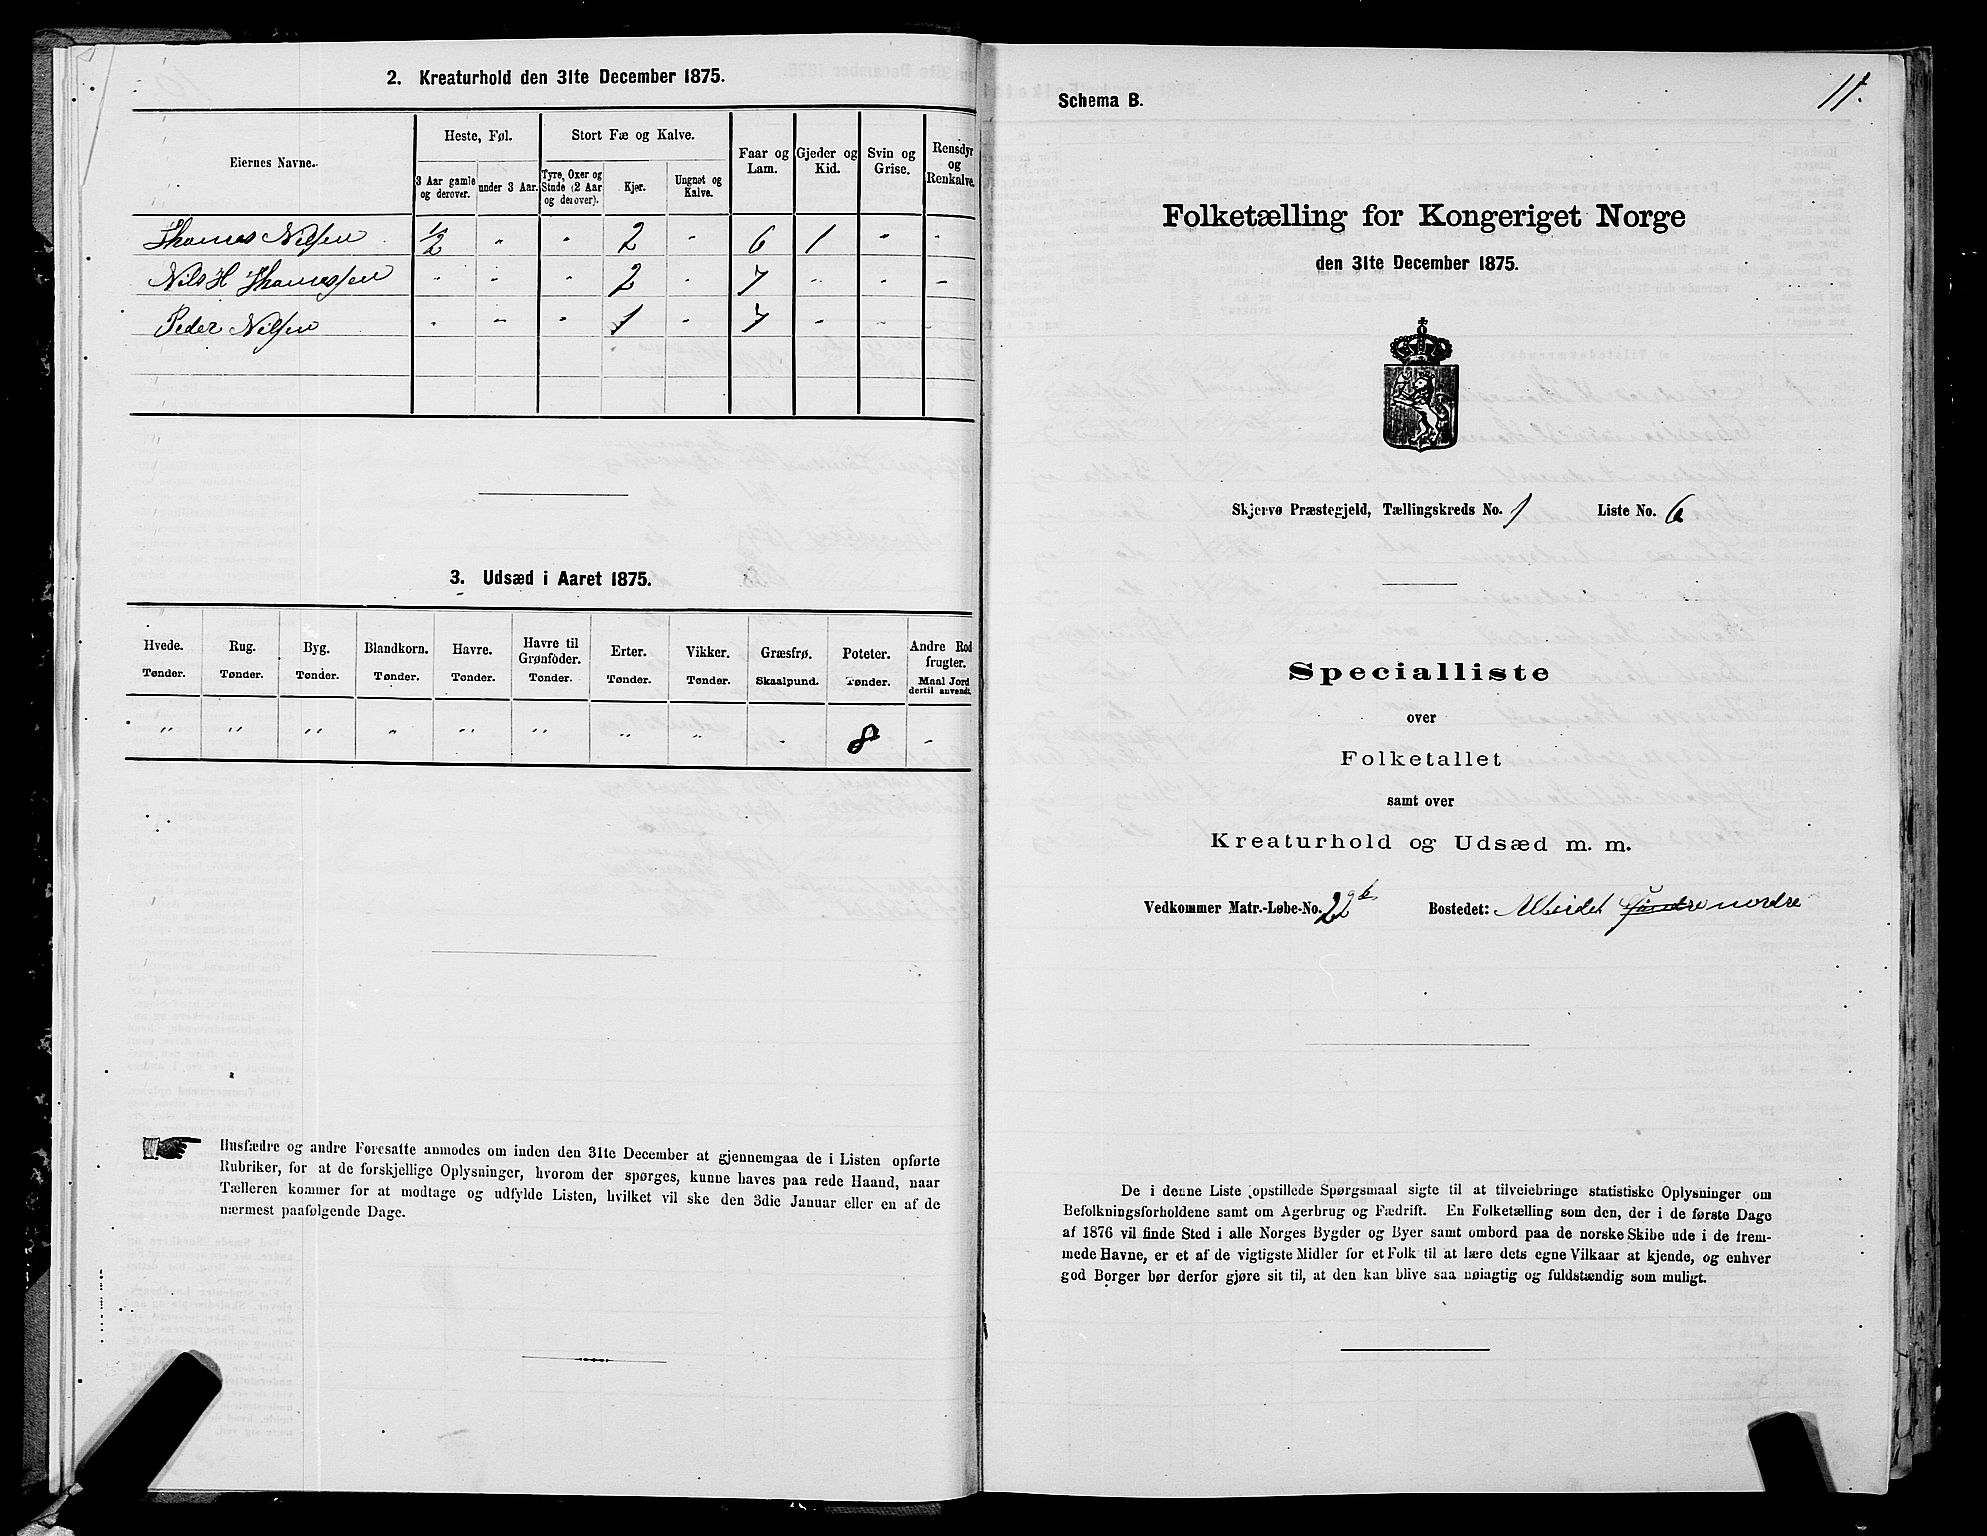 2. Kreaturhold den 31te December 1875.
Eiernes Navne.
Heste, Føl.
Stort Fæ og Kalve.
Faar og Lam.
Gjeder og Kid.
Svin og Grise.
Rensdyr og Renkalve.
3 Aar gamle og derover.
under 3 Aar.
Tyre, Oxer og Stude (2 Aar og derover).
Kjør.
Ungnøt og Kalve.
Thomas Nilsen 1/2 " " 2 " 6 1 " "
Nils H Thomassen " " " 2 " 7 " " "
Peder Nilsen " " " 1 " 7 " " "
3. Udsæd i Aaret 1875.
Hvede. Rug. Byg. Blandkorn. Havre. Havre til Grønfoder. Erter. Vikker. Græsfrø. Poteter. Andre Rodfrugter.
Tønder. Tønder. Tønder. Tønder. Tønder. Tønder. Tønder. Tønder. Skaalpund. Tønder. Maal Jord dertil anvendt.
" " " " " " " " " 8 "
Husfædre og andre Foresatte anmodes om inden den 31te December at gjennemgaa de i Listen opførte
Rubriker, for at de forskjellige Oplysninger, hvorom der spørges, kunne haves paa rede Haand, naar
Tælleren kommer for at modtage og udfylde Listen, hvilket vil ske den 3die Januar eller en af de
nærmest paafølgende Dage.
11.
Schema B.
Folketælling for Kongeriget Norge
den 31te December 1875.
Skjervø Præstegjeld, Tællingskreds No. 1 Liste No. 6
Specialliste
over
Folketallet
samt over
Kreaturhold og Udsæd m. m.
Vedkommer Matr.-Løbe-No. 22 Bostedet: nordre
De i denne Liste opstillede Spørgsmaal sigte til at tilveiebringe statistiske Oplysninger om
Befolkningsforholdene samt om Agerbrug og Fædrift. En Folketælling som den, der i de første Dage
af 1876 vil finde Sted i alle Norges Bygder og Byer samt ombord paa de norske Skibe ude i de frem-
mede Havne, er et af de vigtigste Midler for et Folk til at lære dets egne Vilkaar at kjende, og enhver
god Borger bør derfor gjøre sit til, at den kan blive saa nøiagtig og fuldstændig som muligt.